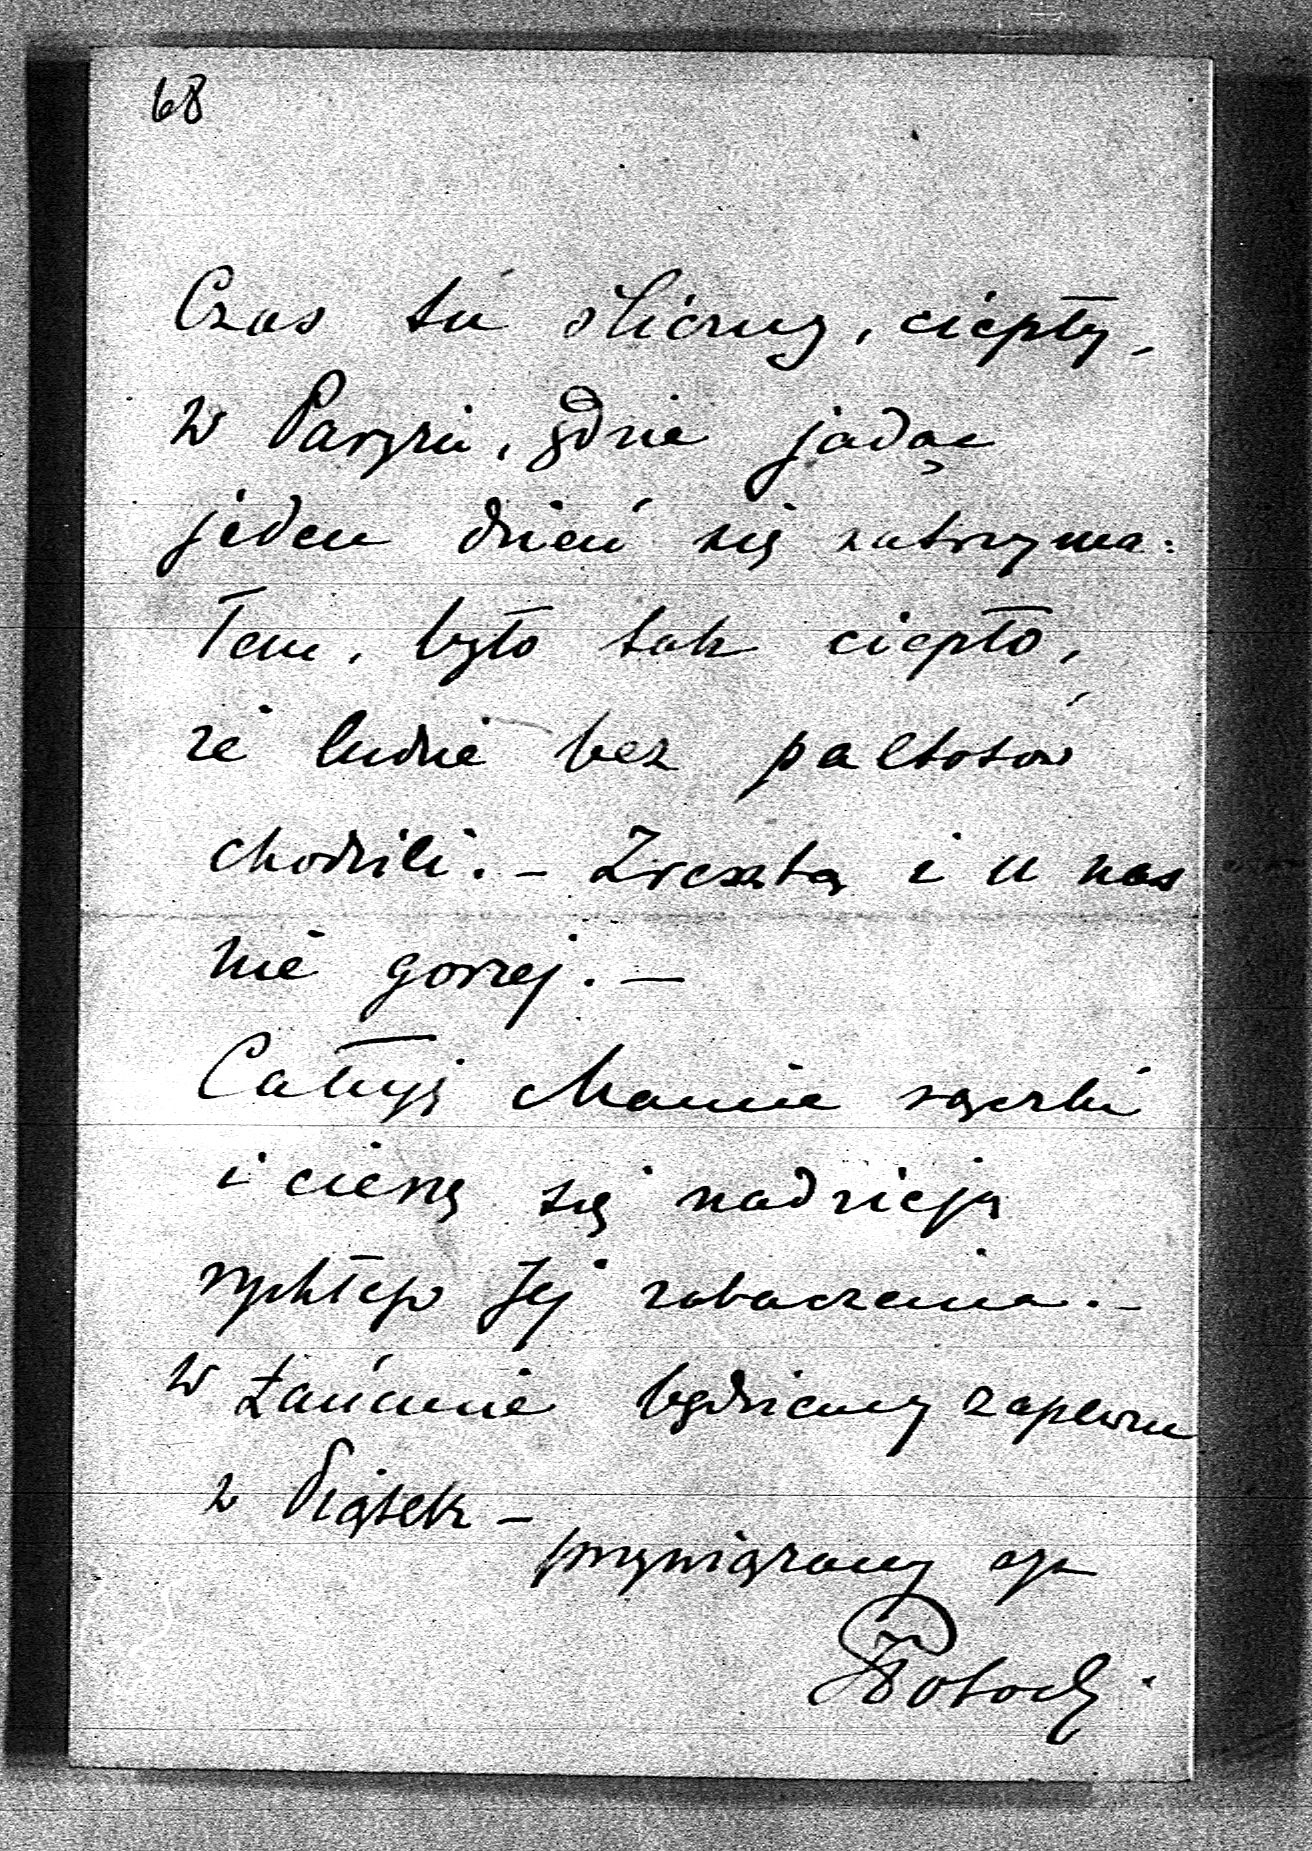 68
Czas tu śliczny, ciepły,
w Paryżu, gdzie jadąc
jeden dzień się zatrzyma:
łem, było tak ciepło,
że ludzie bez paltotów
chodzili. – Zresztą i u nas
nie gorzej. –
Całuję Mamie rączki
i cieszę się nadzieją
rychłego Jej zobaczenia. –
w Łańcucie będziemy zapewne
w Piątek –
przywiązany
Potocki.